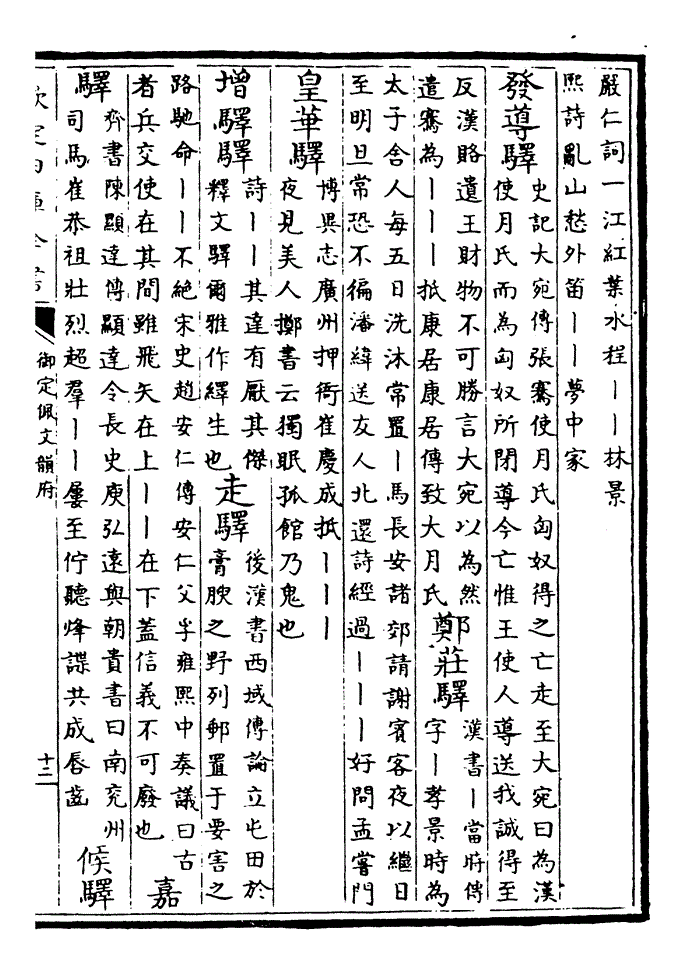 嚴仁詞一江紅葉水程丨丨林景
熙詩亂山愁外笛丨丨夢中家
發導驛
史記大宛傳張騫使月氏匈奴得之亡走至大宛曰為漢
使月氏而為匈奴所閉導今亡惟王使人導送我誠得至
反漢賂遺王財物不可勝言大宛以為然
遣騫為丨丨丨抵康居康居傳致大月氏
鄭莊驛
漢書丨當時傳
字丨孝景時為
太子舍人每五日洗沐常置丨馬長安諸郊請謝賓客夜以繼日
至明旦常恐不徧潘緯送友人北還詩經過丨丨丨好問孟嘗門
皇華驛
博異志廣州押衙崔慶成抵丨丨丨
夜見美人擲書云獨眠孤館乃鬼也
增驛驛
詩丨丨其達有厭其傑
釋文驛爾雅作繹生也
走驛
後漢書西域傳論立屯田於
膏腴之野列郵置于要害之
路馳命丨丨不絕宋史趙安仁傳安仁父孚雍熙中奏議曰古
者兵交使在其間雖飛矢在上丨丨在下蓋信義不可廢也
嘉
驛
齊書陳顯達傳顯達令長史庾弘遠與朝貴書曰南兖州
司馬崔恭祖壯烈超羣丨丨屢至佇聽烽諜共成唇齒
候驛
欽定四庫全書
御定佩文韻府
十三